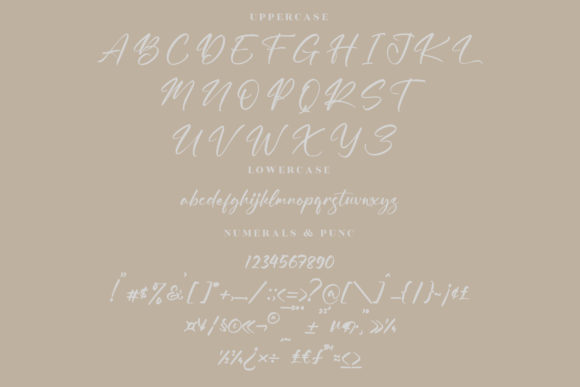 UPPERCASE
ABCDEFGHIJKL
MNOPQRST
UVWXYZ
LOWERCASE
abcdefghijklmnopqrstuvwxyz
NUMERALS & PUNC
1234567890
!"#$%&'[]*+,—./:;<=>?@[\]^_{|}~¡¢£
¤¥/§©«¬® ± »¼
½¾¿×÷ £€ƒ ≈<>